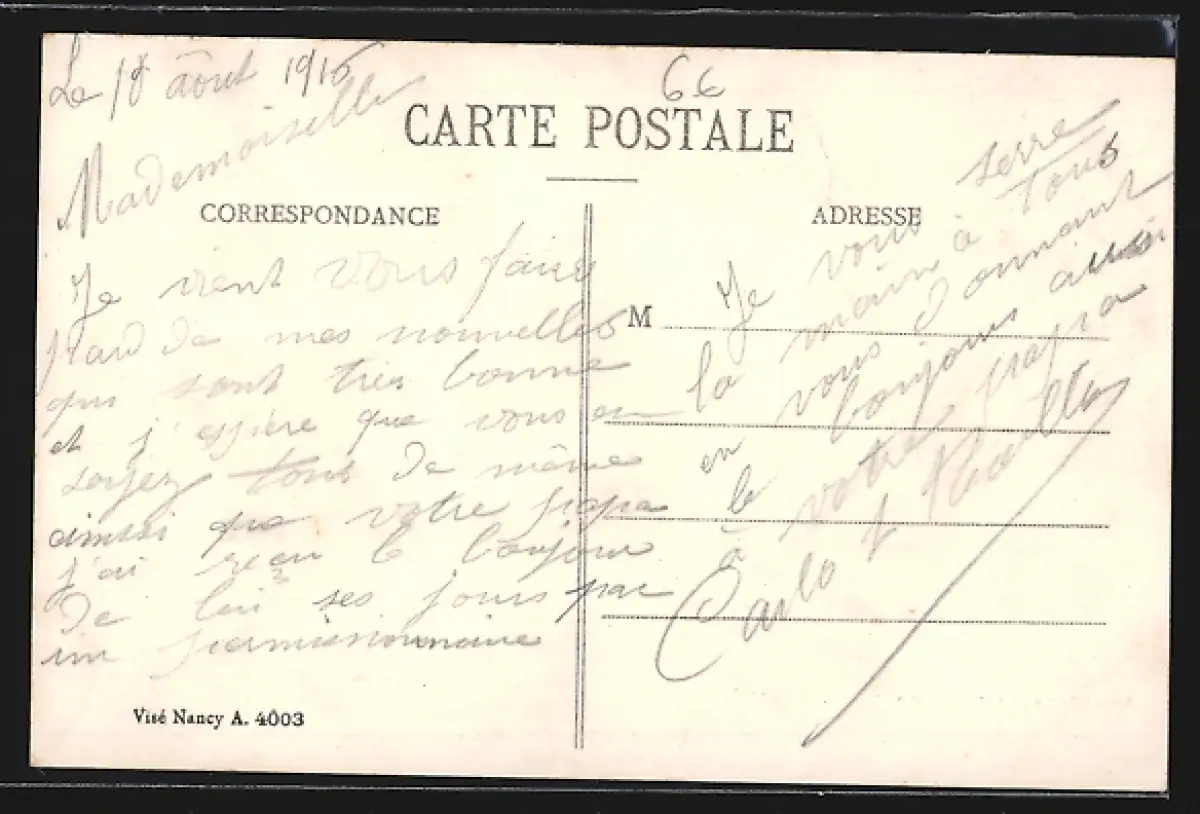 Le 18 Août 1915
6€
Mademoiselle
CARTE POSTALE
CORRESPONDANCE
Je vient vous faire
pard de mes nouvelles
qui sont tres bonne
et j'espère que vous en
soyez tous de même
ainssi que votre papa
j'ai reçu le bonjour
de lui ses jours par
un permissionnaire
Visé Nancy A. 4003
ADRESSE
M
Je vous serre
la main à Tous
en vous donnant
le bonjour aussi
à votre papa
Carlo